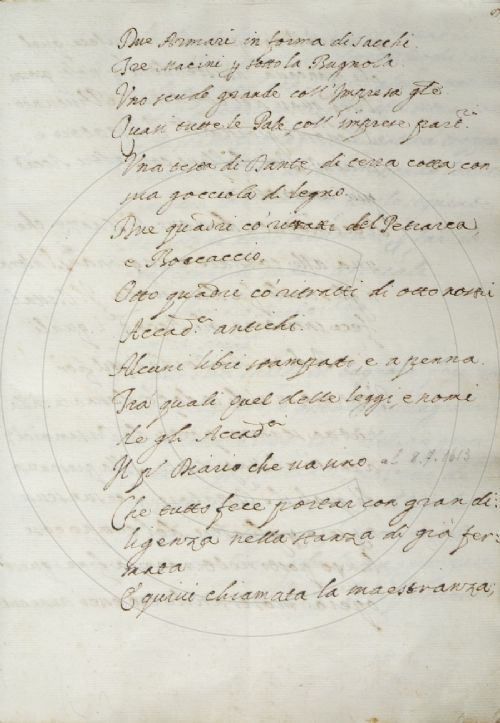 Due Armari in forma di sacchi.
Tre macini p sotto la Bugnola.
Uno scudo grande coll'Impresa gńle.
Quasi tutte le Pale coll'imprese
Una testa di Dante, di terra cotta, con
sua gocciola di legno.
Due quadri co' ritratti del Petrarca,
e Boccaccio,
Otto quadri co' ritratti di otto nostri
Accad.ci antichi.
Alcuni libri stampati, e a penna.
Tra quali quel delle leggi, e nomi
de gli Accad.ci
Il Diario che va uno al 8.7.1613
Che tutto fece portar con gran di:
ligenza nella stanza di già fer:
mata
E quivi chiamata la maestranza;